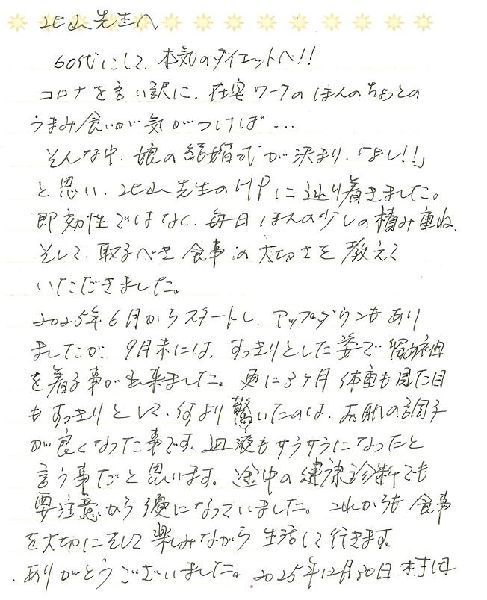 北山先生へ
60代にして、本気のダイエットへ!!
コロナを言い訳に、在宅ワークのほんのちょっとの
つまみ食いが気がつけば…
そんな中、娘の結婚式が決まり、「よし!!」
と思い、北山先生のHPに辿り着きました。
即効性ではなく、毎日ほんの少しの積み重ね、
そして、取るべき食事の大切さを教えて
いただきました。
2025年6月からスタートし、アップダウンもあり
ましたが、9月末には、すっきりとした姿で留袖
を着る事が出来ました。更に3ヶ月体重も見た目
もすっきりとして、何より驚いたのは、お肌の調子
が良くなった事です。血液もサラサラになったと
言う事だと思います。途中の健康診断でも
要注意から優になっていました。これからも食事
を大切にそして楽しみながら生活して行きます。
ありがとうございました。2025年12月30日